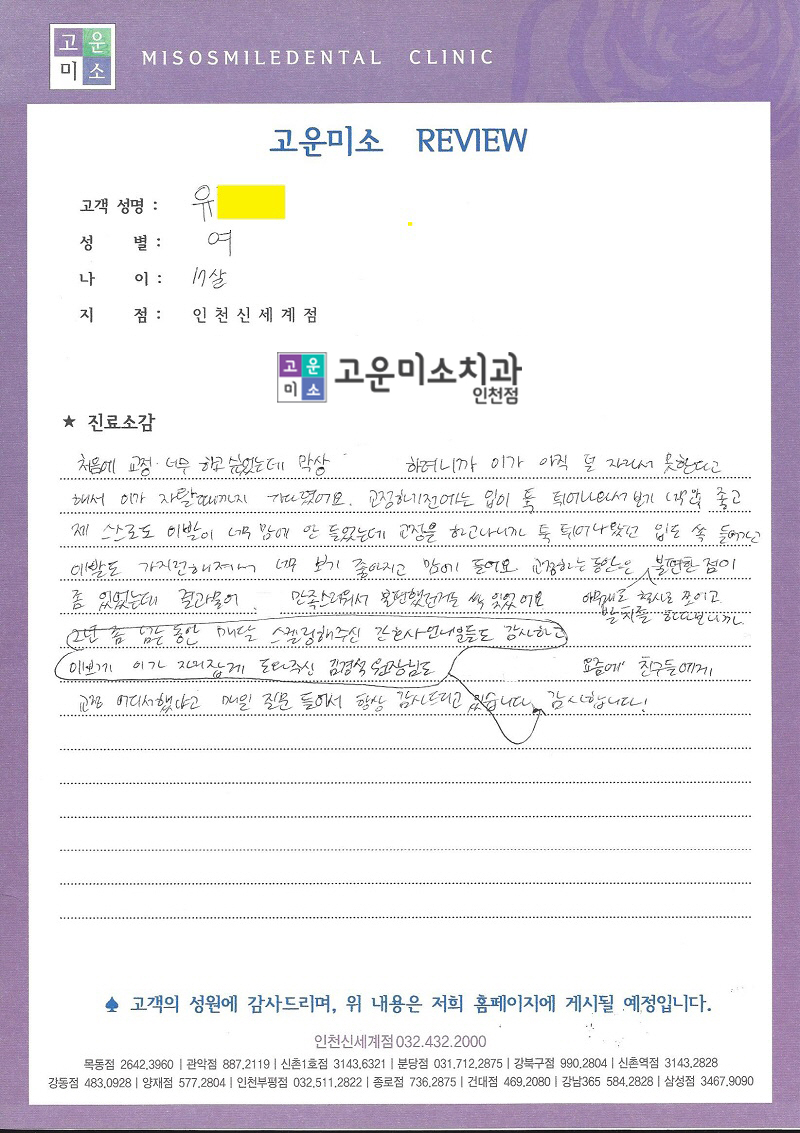 고운
미소
MISOSMILEDENTAL CLINIC
고운미소 REVIEW
고객 성명 : 유
성 별 : 여
나 이 : 17살
지 점 : 인천신세계점
고운
미소
고운미소치과
인천점
★ 진료소감
처음에 교정 너무 하고 싶었는데 막상 하려니까 이가 아직 덜 자라서 못한다고
해서 이가 자랄때까지 기다렸어요. 교정하기전에는 입이 툭 튀어나와서 보기 안 좋고
제 스스로도 이빨이 너무 맘에 안 들었는데 교정을 하고나니까 툭 튀어나왔던 입도 쏙 들어가고
이빨도 가지런해져서 너무 보기 좋아지고 맘에 들어요. 교정하는동안은 불편한 점이
좀 있었는데 결과물이 만족스러워서 불편했던거는 싹 잊었어요
아무래도 철사로 조이고
발치를 하다보니까
2년 좀 넘는 동안 매달 스켈링해주신 간호사언니들도 감사하고
이쁘게 이가 자리잡게 도와주신 김경석 원장님도 요즘에 친구들에게
교정 어디서했냐고 매일 질문 들어서 항상 감사드리고 있습니다. 감사합니다!
♠ 고객의 성원에 감사드리며, 위 내용은 저희 홈페이지에 게시될 예정입니다.
인천신세계점 032.432.2000
목동점 2642,3960 | 관악점 887,2119 | 신촌1호점 3143,6321 | 분당점 031,712,2875 | 강북구점 990,2804 | 신촌역점 3143,2828
강동점 483,0928 | 양재점 577,2804 | 인천부평점 032,511,2822 | 종로점 736,2875 | 건대점 469,2080 | 강남365 584,2828 | 삼성점 3467,9090